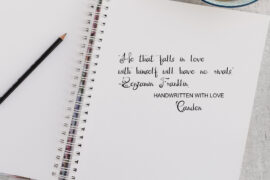 "He that falls in love
with himself will have no rivals"
-Benjamin Franklin
HANDWRITTEN WITH LOVE
Camden